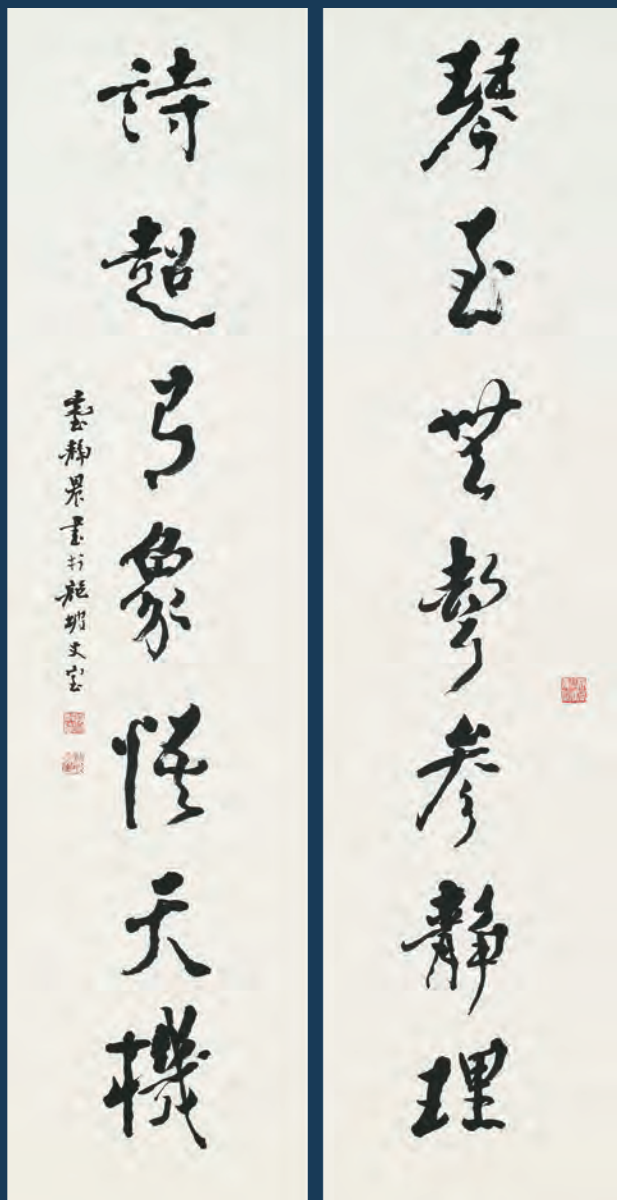 琴至無聲參靜理
詩超象天機
臺靜農書於龍坡丈室